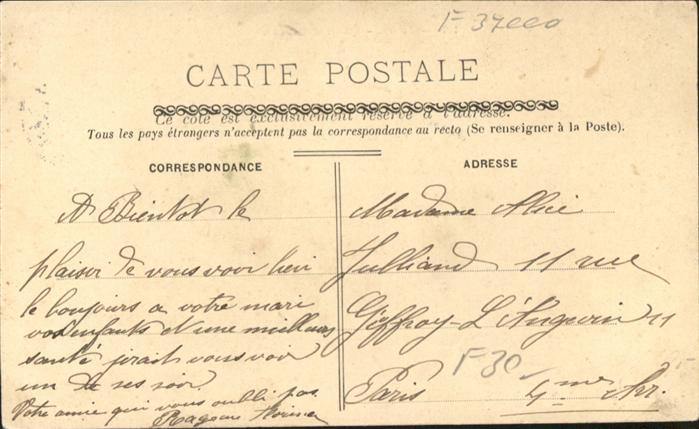 F 37000
CARTE POSTALE
Ce côté est exclusivement réservé à l'adresse.
Tous les pays étrangers n'acceptent pas la correspondance au recto (Se renseigner à la Poste).
CORRESPONDANCE
A Bientot le
plaisir de vous voir bien
le boujours a votre mari
vos enfants et une meilleurs
santé jirait vous voir
un de ses soir.
Votre amie qui vous oubli pas
ADRESSE
Madame Alice
Julliand 11 rue
Geffroy-L'Angevin 11
F 30
Paris 4me Arr.